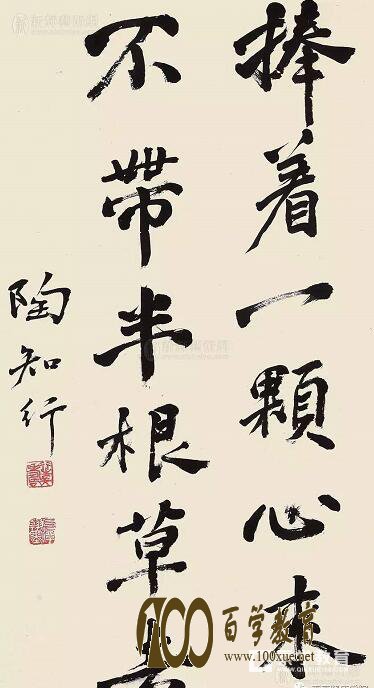 捧着一顆心來
不帶半根草
陶知行
100百学教育
www.100xuel.net
教育